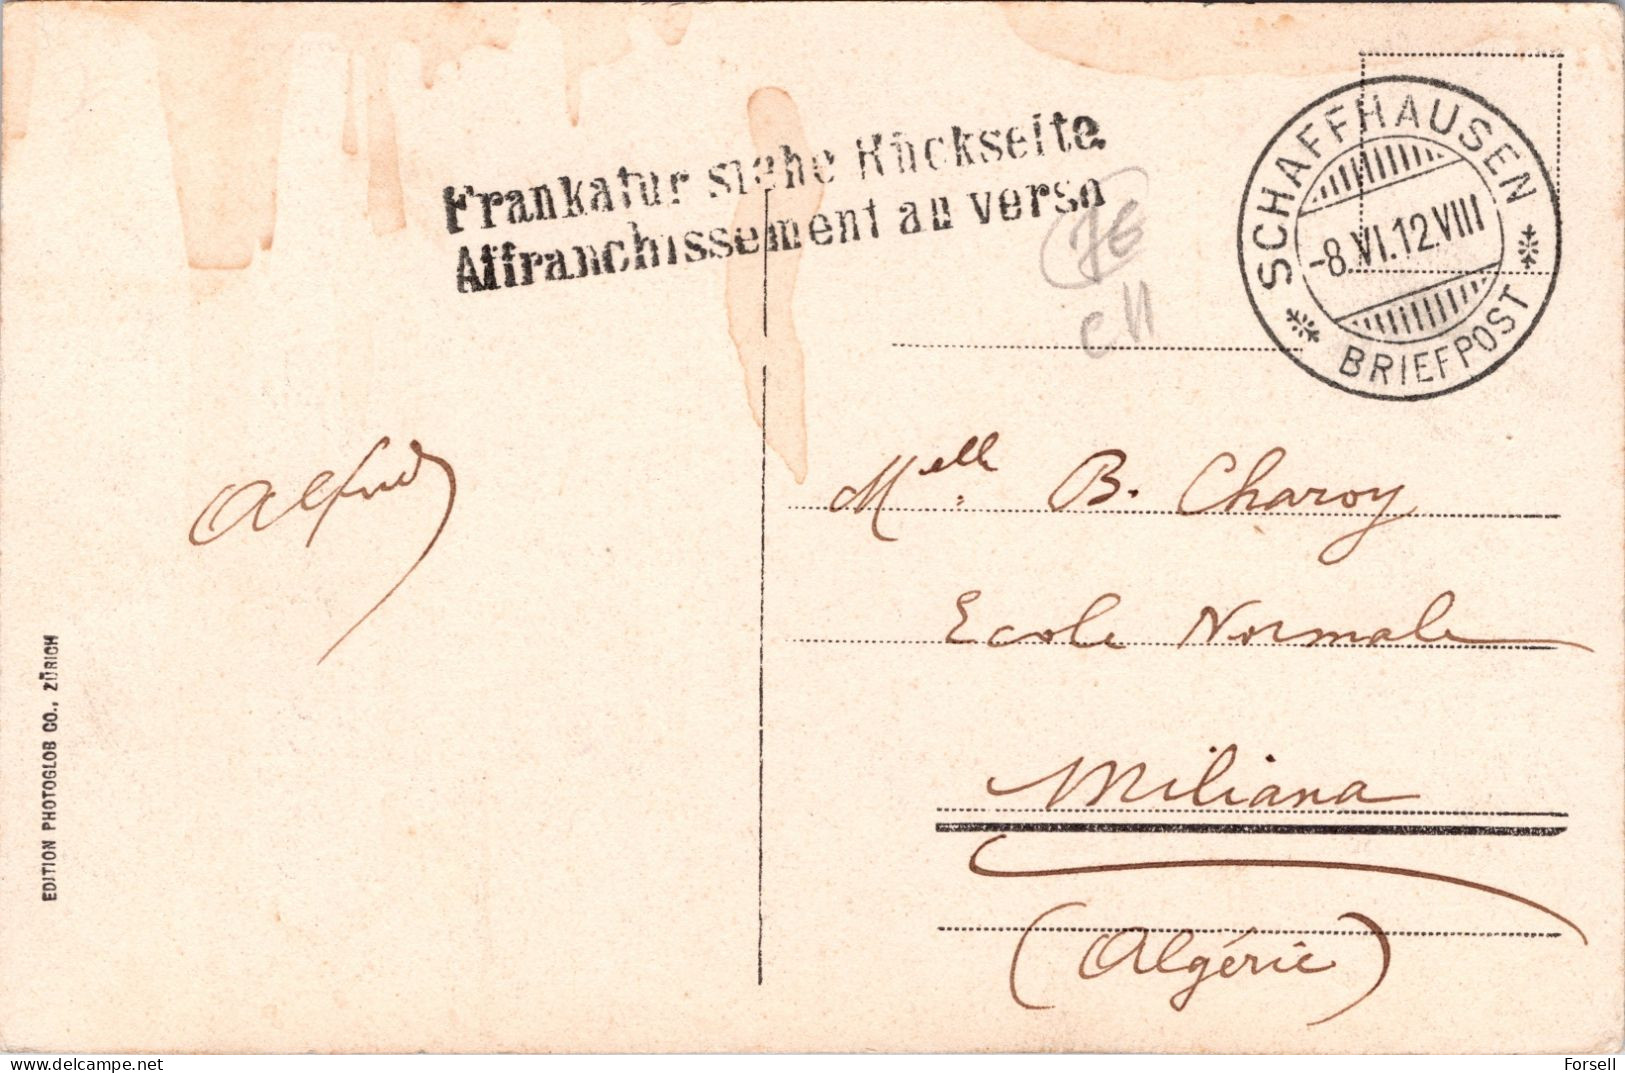 Frankatur siehe Rückseite
Affranchissement au verso
SCHAFFHAUSEN
-8.VI.12.VIII
BRIEFPOST
CH
Alfred
Melle B. Charoy
Ecole Normale
Miliana
(Algérie)
EDITION PHOTOGLOB CO., ZÜRICH
Forsell